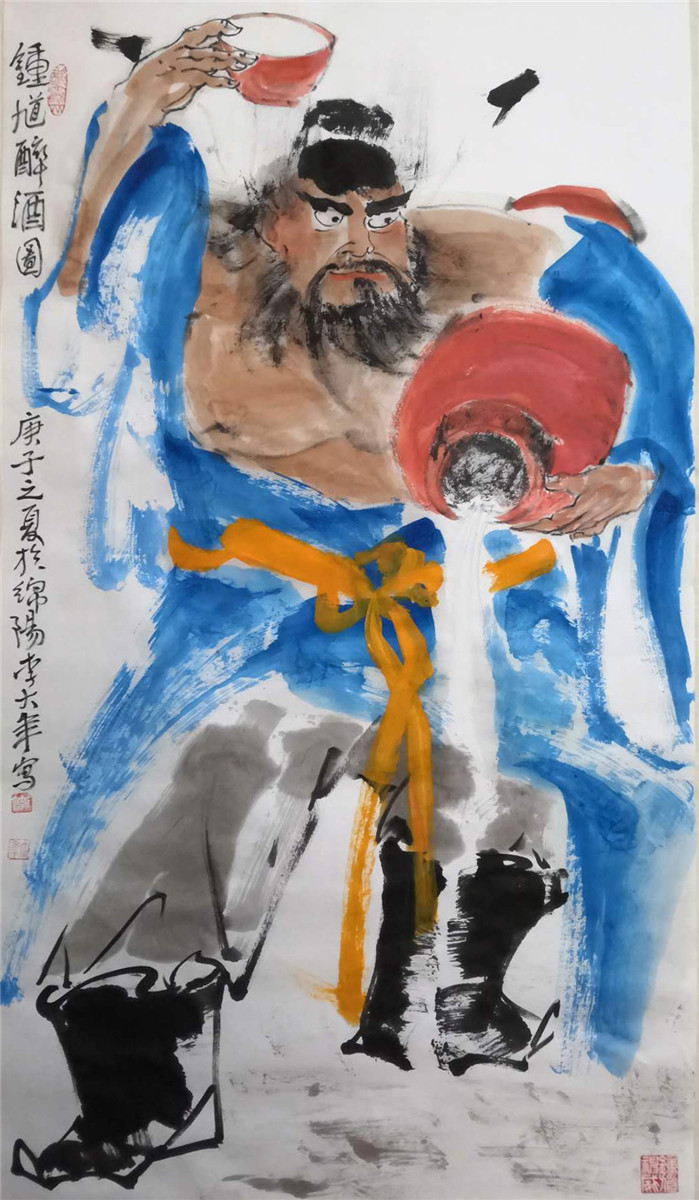 鍾馗醉酒圖
庚子之夏於綿陽李大年寫